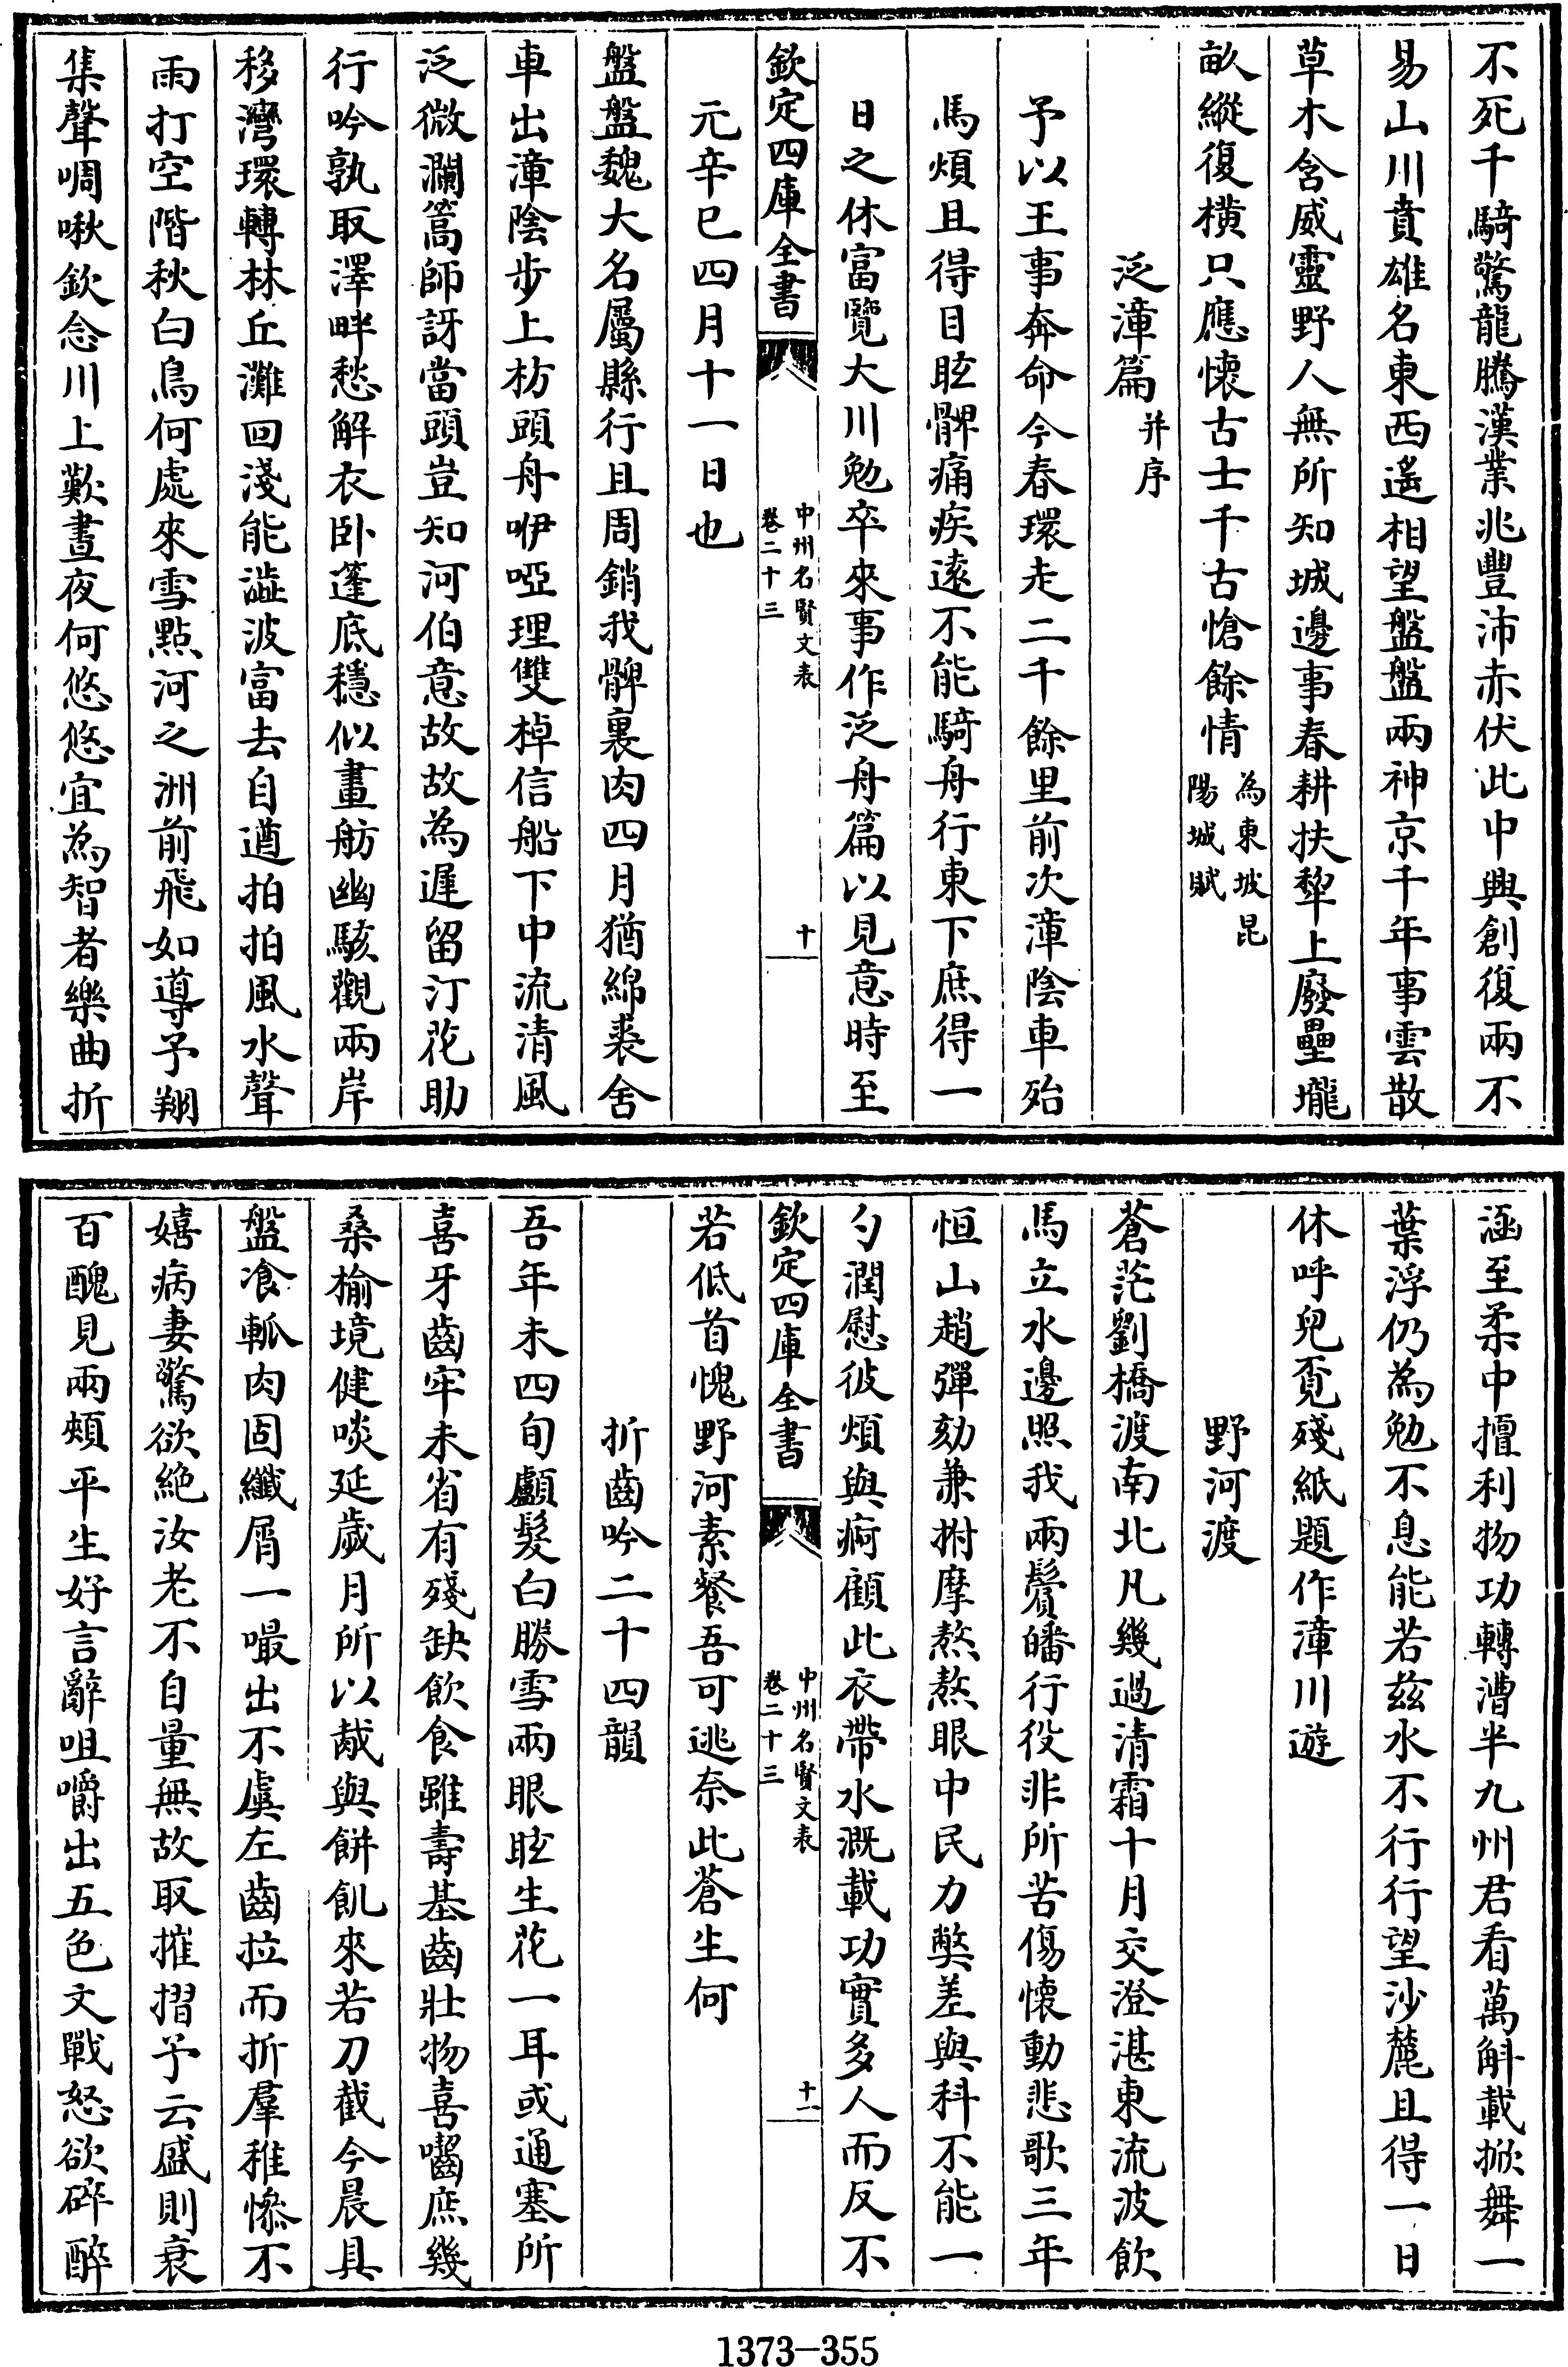 不死千騎驚龍騰漢業兆豐沛赤伏此中興創復兩不
易山川賁雄名東西遙相望盤盤兩神京千年事雲散
草木含威靈野人無所知城邊事春耕扶犂上廢壘壠
畝縱復橫只應懷古士千古愴餘情為東坡昆陽城賦
泛漳篇并序
予以王事奔命今春環走二千餘里前次漳陰車殆
馬煩且得目眩髀痛疾逺不能騎舟行東下庶得一
日之休富覽大川勉卒來事作泛舟篇以見意時至
欽定四庫全書
中州名賢文表
卷二十三
十
元辛巳四月十一日也
盤盤魏大名屬縣行且周銷我髀裏肉四月猶綿裘舍
車出漳陰步上枋頭舟咿啞理雙棹信船下中流清風
泛微瀾篙師訝當頭豈知河伯意故故為遲留汀花助
行吟孰取澤畔愁解衣卧篷底穩似畫舫幽駭觀兩岸
移灣環轉林丘灘回淺能澁波富去自遒拍拍風水聲
雨打空階秋白鳥何處來雪點河之洲前飛如導予翔
集聲啁啾欽念川上歎晝夜何悠悠宜為智者樂曲折
涵至柔中擅利物功轉漕半九州君看萬斛載掀舞一
葉浮仍為勉不息能若兹水不行行望沙麓且得一日
休呼兒覓殘紙題作漳川遊
野河渡
蒼茫劉橋渡南北凡幾過清霜十月交澄湛東流波飲
馬立水邊照我兩鬢皤行役非所苦傷懷動悲歌三年
恒山趙彈劾兼拊摩熬熬眼中民力獘差與科不能一
勺潤慰彼煩與痾顧此衣帶水溉載功實多人而反不
欽定四庫全書
中州名賢文表
卷二十三
十一
若低首愧野河素餐吾可逃奈此蒼生何
折齒吟二十四韻
吾年未四旬顱髮白勝雪兩眼眩生花一耳或通塞所
喜牙齒牢未省有殘缺飲食雖壽基齒壯物喜囓庶幾
桑榆境健啖延歲月所以胾與餅飢來若刀截今晨具
盤飡軱肉固纖屑一嘬出不虞左齒拉而折羣稚慘不
嬉病妻驚欲絶汝老不自量無故取摧摺予云盛則衰
百醜見兩頰平生好言辭咀嚼出五色文戰怒欲碎醉
1373-355